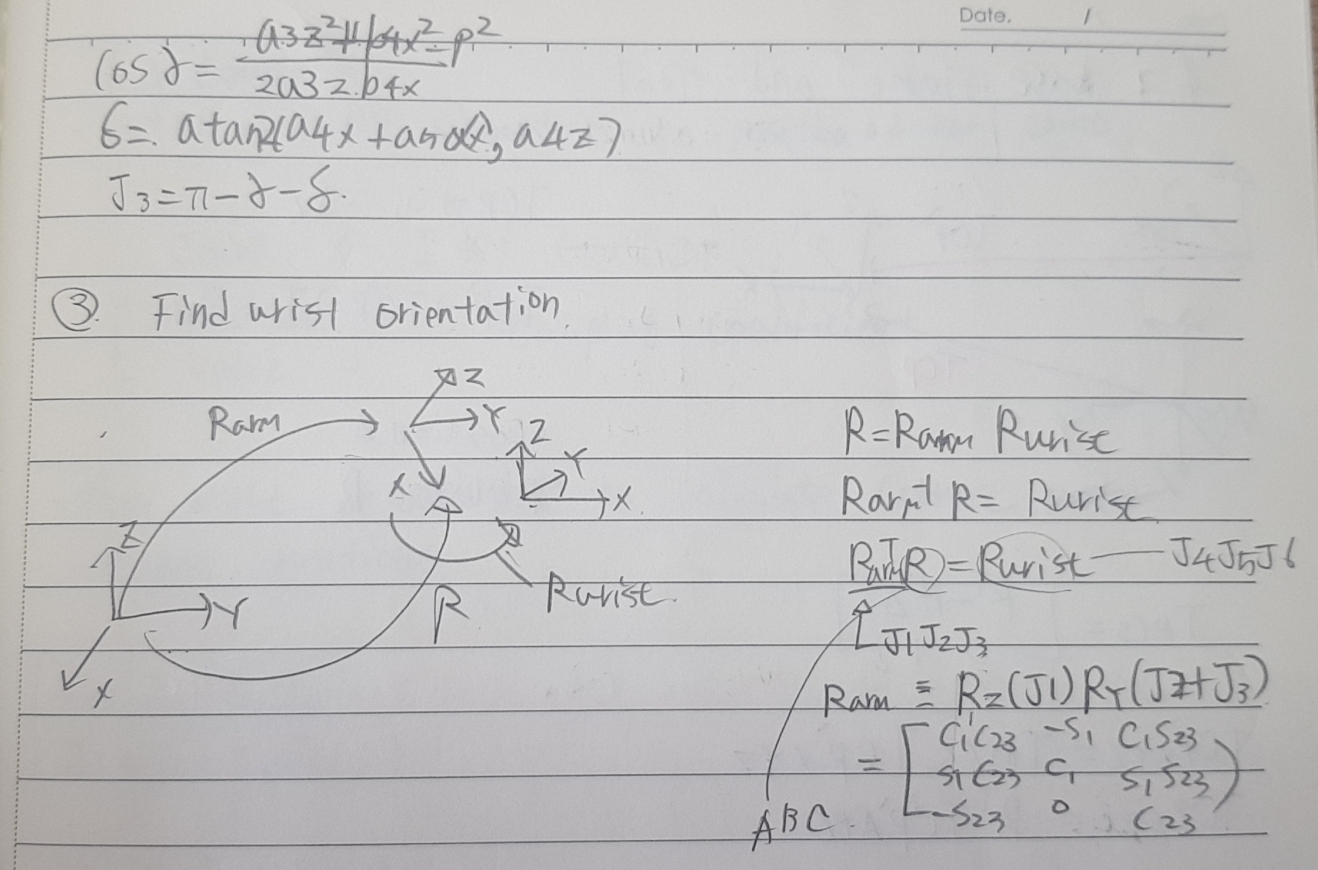 Date. /
cosγ = a3z²+b4x²-p² / 2a3z.b4x
δ=. atan2(a4x+a5x, a4z)
J3=π-γ-δ.
③. Find wrist orientation.
Z
Rarm
Y
X
Z
Y
X
Z
Y
X
R
Rwrist.
R=Rarm Rwrist
Rarm⁻¹ R= Rwrist
RarmᵀR = Rwrist — J4J5J6
J1J2J3
Rarm = Rz(J1)RY(J2+J3)
= [ C1C23 -S1 C1S23
S1C23 C1 S1S23
-S23 0 C23 ]
ABC.